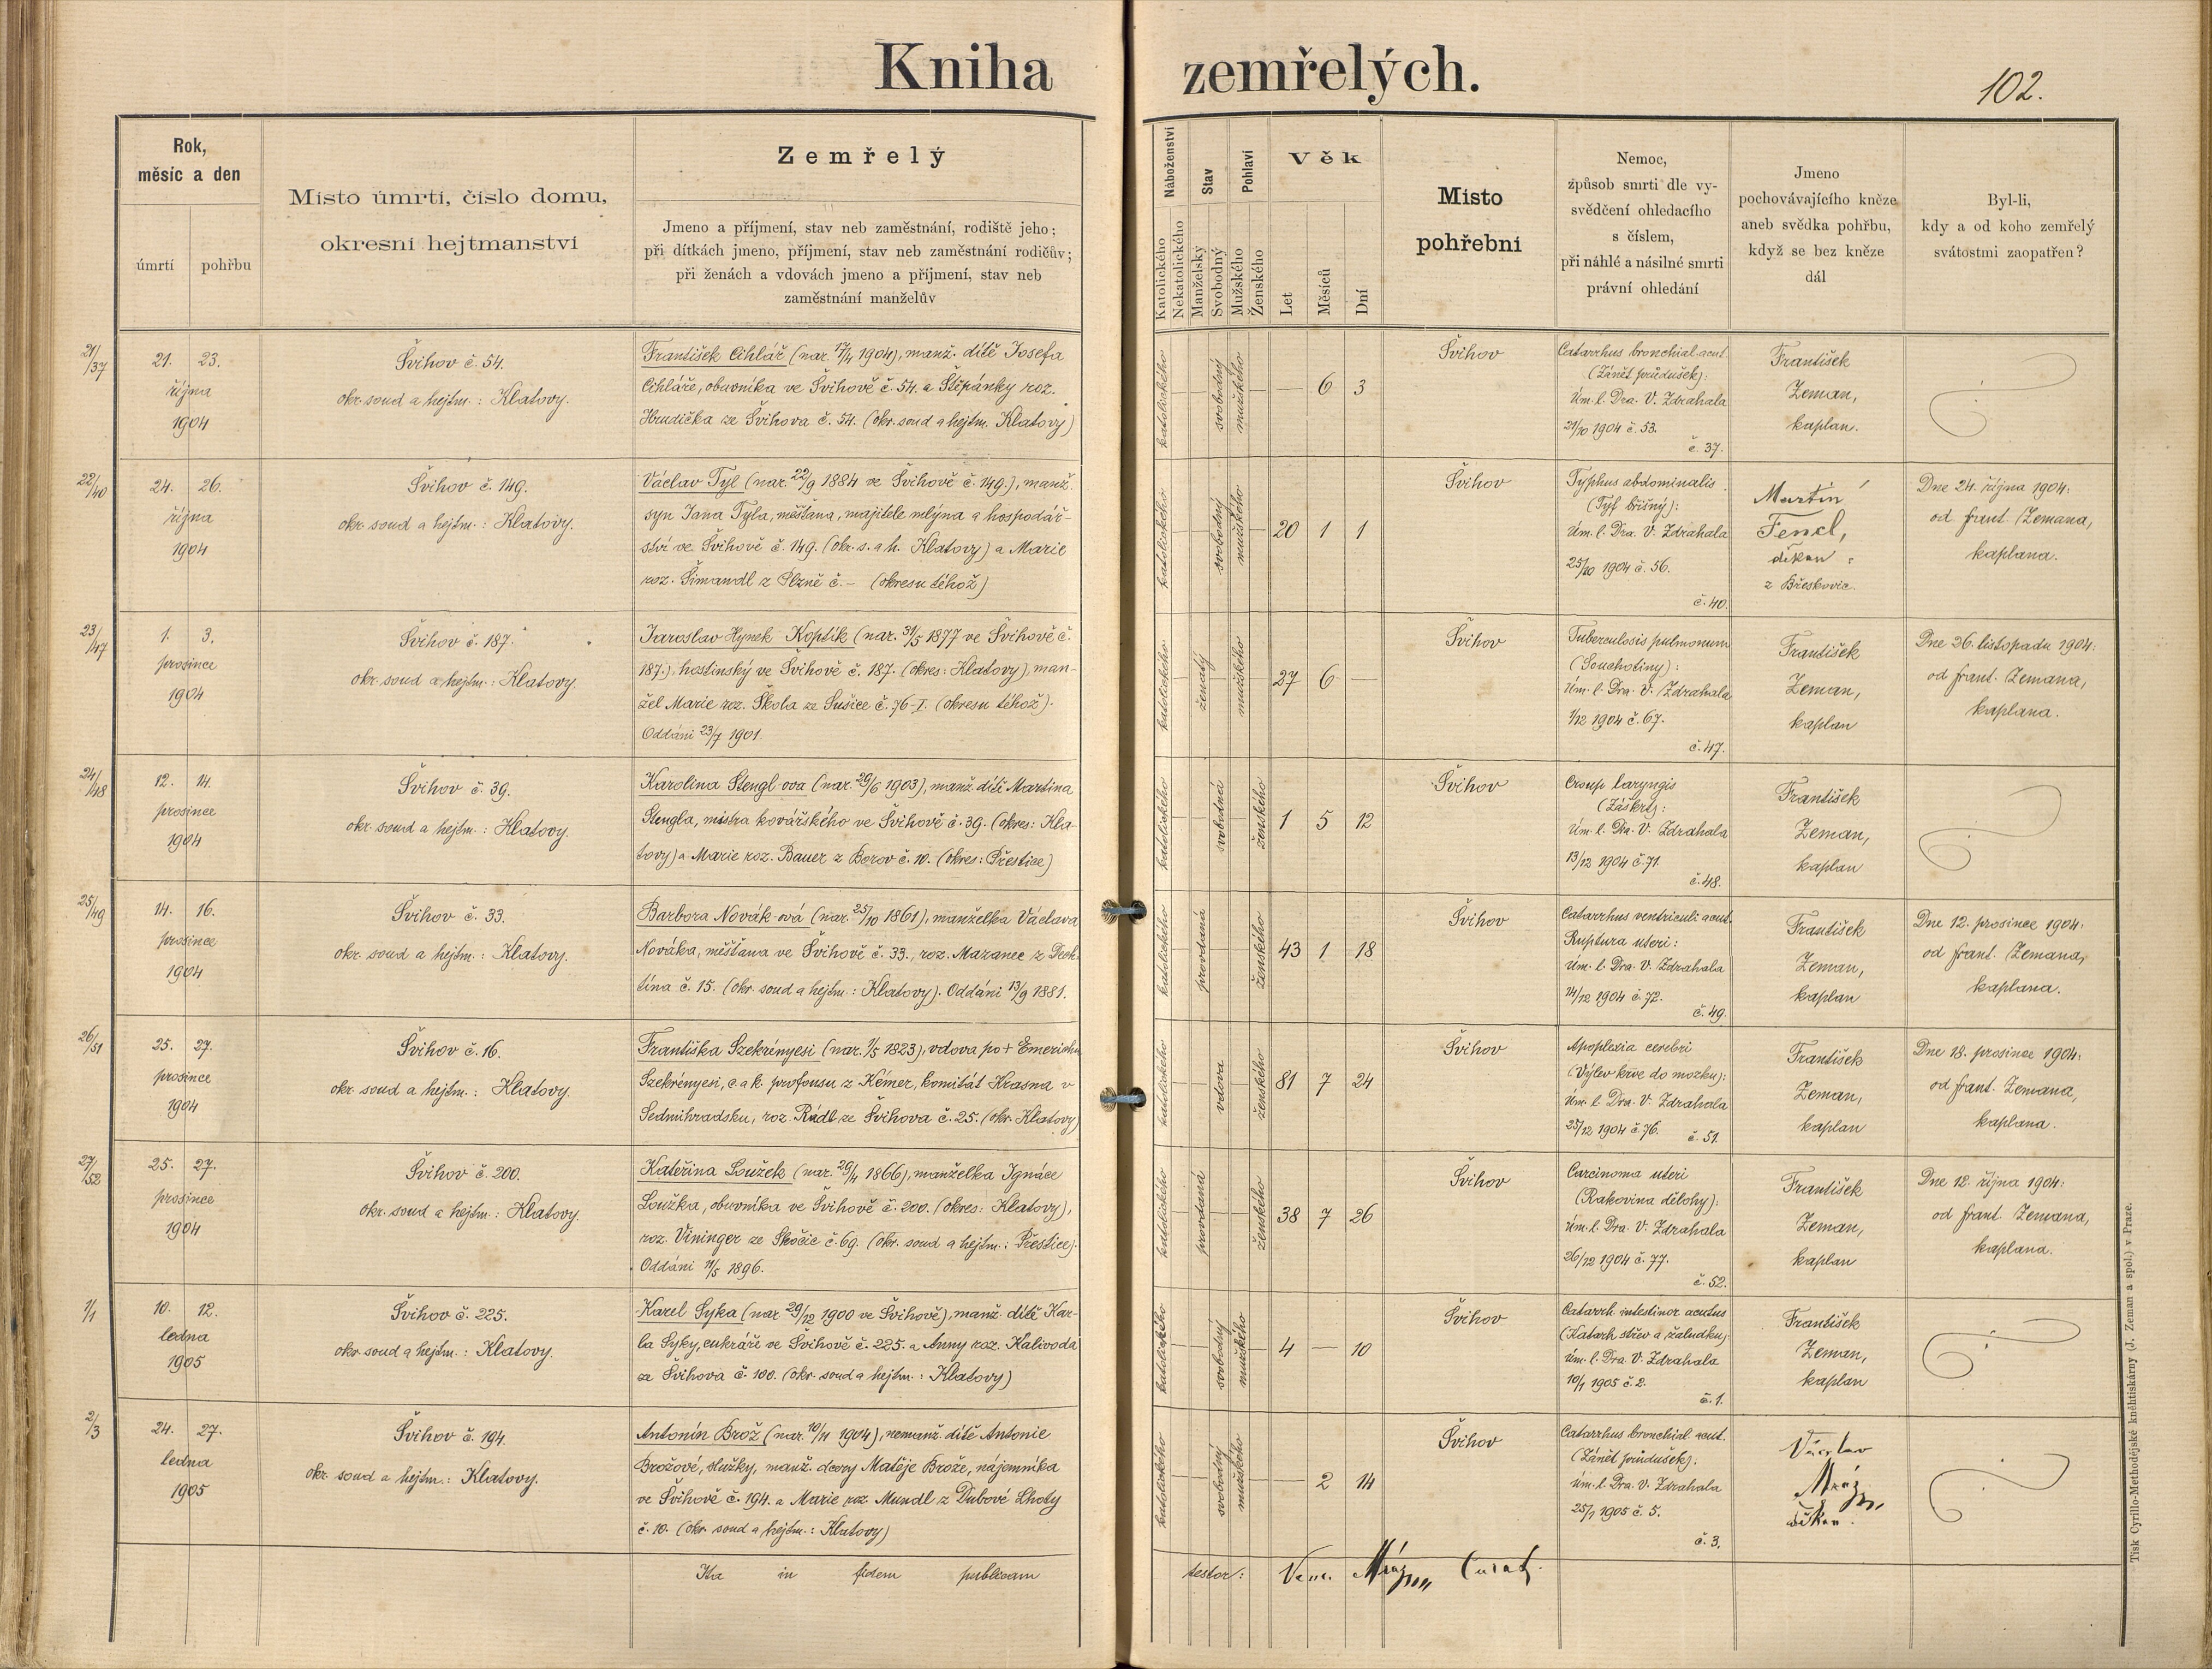 Kniha zemřelých.
102.
Rok,
měsíc a den
úmrtí pohřbu
Místo úmrtí, číslo domu,
okresní hejtmanství
Zemřelý
Jmeno a příjmení, stav neb zaměstnání, rodiště jeho;
při dítkách jmeno, příjmení, stav neb zaměstnání rodičův;
při ženách a vdovách jmeno a příjmení, stav neb
zaměstnání manželův
Náboženství
Katolického
Nekatolického
Stav
Manželský
Svobodný
Pohlaví
Mužského
Ženského
Věk
Let
Měsíců
Dní
Místo
pohřební
Nemoc,
způsob smrti dle vy-
svědčení ohledacího
s číslem,
při náhlé a násilné smrti
právní ohledání
Jmeno
pochovávajícího kněze
aneb svědka pohřbu,
když se bez kněze
dál
Byl-li,
kdy a od koho zemřelý
svátostmi zaopatřen?
21/37
21. 23.
října
1904
Švihov č. 54.
okr. soud a hejtm.: Klatovy.
František Cihlář (nar. 17/4 1904), manž. dítě Josefa
Cihláře, obuvníka ve Švihově č. 54. a Štěpánky roz.
Hrudička ze Švihova č. 54. (okr. soud a hejtm. Klatovy)
katolického
svobodný
mužského
— 6 3
Švihov
Catarrhus bronchial. acut.
(Zánět průdušek):
Úm. l. Dra. V. Zdrahala
21/10 1904 č. 53.
č. 37.
František
Zeman,
kaplan.
22/40
24. 26.
října
1904
Švihov č. 149.
okr. soud a hejtm.: Klatovy.
Václav Tyl (nar. 22/9 1884 ve Švihově č. 149.), manž.
syn Jana Tyla, měšťana, majitele mlýna a hospodář-
ství ve Švihově č. 149. (okr. s. a h. Klatovy) a Marie
roz. Šimandl z Plzně č. – (okresu téhož)
katolického
svobodný
mužského
20 1 1
Švihov
Typhus abdominalis
(Tyf břišný):
Úm. l. Dra. V. Zdrahala
25/10 1904 č. 56.
č. 40.
Martin
Fencl,
děkan
z Břeskovic.
Dne 24. října 1904:
od Frant. Zemana,
kaplana.
23/47
1. 3.
prosince
1904
Švihov č. 187.
okr. soud a hejtm.: Klatovy.
Jaroslav Hynek Koptík (nar. 31/5 1877 ve Švihově č.
187.), hostinský ve Švihově č. 187. (okres: Klatovy), man-
žel Marie roz. Škola ze Sušice č. 76-I. (okresu téhož).
Oddáni 23/7 1901.
katolického
ženatý
mužského
27 6 —
Švihov
Tuberculosis pulmonum
(Souchotiny):
Úm. l. Dra. V. Zdrahala
1/12 1904 č. 67.
č. 47.
František
Zeman,
kaplan
Dne 26. listopadu 1904:
od Frant. Zemana,
kaplana.
24/48
12. 14.
prosince
1904
Švihov č. 39.
okr. soud a hejtm.: Klatovy.
Karolina Stengl-ova (nar. 29/6 1903), manž. dítě Martina
Stengla, mistra kovářského ve Švihově č. 39. (okres: Kla-
tovy) a Marie roz. Bauer z Borov č. 10. (okres: Přestice)
katolického
svobodná
ženského
1 5 12
Švihov
Croup laryngis
(Záškrt):
Úm. l. Dra. V. Zdrahala
13/12 1904 č. 71.
č. 48.
František
Zeman,
kaplan
25/49
14. 16.
prosince
1904
Švihov č. 33.
okr. soud a hejtm.: Klatovy.
Barbora Novák-ová (nar. 25/10 1861), manželka Václava
Nováka, měšťana ve Švihově č. 33., roz. Mazanec z Dech-
tína č. 15. (okr. soud a hejtm.: Klatovy). Oddáni 13/9 1881.
katolického
provdaná
ženského
43 1 18
Švihov
Catarrhus ventriculi acut.
Ruptura uteri:
Úm. l. Dra. V. Zdrahala
14/12 1904 č. 72.
č. 49.
František
Zeman,
kaplan
Dne 12. prosince 1904:
od Frant. Zemana,
kaplana.
26/51
25. 27.
prosince
1904
Švihov č. 16.
okr. soud a hejtm.: Klatovy.
Františka Szekrényesi (nar. 1/5 1823), vdova po + Emerichu
Szekrényesi, c. a k. profousu z Kémer, komitát Krasna v
Sedmihradsku, roz. Rädl ze Švihova č. 25. (okr. Klatovy)
katolického
vdova
ženského
81 7 24
Švihov
Apoplexia cerebri
(Výlev krve do mozku):
Úm. l. Dra. V. Zdrahala
25/12 1904 č. 76. č. 51.
František
Zeman,
kaplan
Dne 18. prosince 1904:
od Frant. Zemana,
kaplana.
27/52
25. 27.
prosince
1904
Švihov č. 200.
okr. soud a hejtm.: Klatovy.
Kateřina Loužek (nar. 29/4 1866), manželka Ignáce
Loužka, obuvníka ve Švihově č. 200. (okres: Klatovy),
roz. Vininger ze Skočic č. 69. (okr. soud a hejtm.: Přestice).
Oddáni 11/5 1896.
katolického
provdaná
ženského
38 7 26
Švihov
Carcinoma uteri
(Rakovina dělohy):
Úm. l. Dra. V. Zdrahala
26/12 1904 č. 77.
č. 52.
František
Zeman,
kaplan
Dne 12. října 1904:
od Frant. Zemana,
kaplana.
1/1
10. 12.
ledna
1905
Švihov č. 225.
okr. soud a hejtm.: Klatovy.
Karel Syka (nar 29/12 1900 ve Švihově), manž. dítě Kar-
la Syky, cukráře ve Švihově č. 225. a Anny roz. Kalivoda
ze Švihova č. 100. (okr. soud a hejtm.: Klatovy)
katolického
svobodný
mužského
4 — 10
Švihov
Catarrh intestinor. acutus
(Katarh střev a žaludku):
Úm. l. Dra. V. Zdrahala
10/1 1905 č. 2.
č. 1.
František
Zeman,
kaplan
2/3
24. 27.
ledna
1905
Švihov č. 194.
okr. soud a hejtm.: Klatovy.
Antonín Brož (nar. 10/11 1904), nemanž. dítě Antonie
Brožové, služky, manž. dcery Matěje Brože, nájemníka
ve Švihově č. 194. a Marie roz. Mundl z Dubové Lhoty
č. 10. (okr. soud a hejtm.: Klatovy)
katolického
svobodný
mužského
2 14
Švihov
Catarrhus bronchial. acut.
(Zánět průdušek):
Úm. l. Dra. V. Zdrahala
25/1 1905 č. 5.
č. 3.
Václav
Mráz
děkan.
Ita in fidem publicam testor: Venc. Mráz
Tisk Cyrillo-Methodějské knéhtiskárny (J. Zeman a spol.) v Praze.